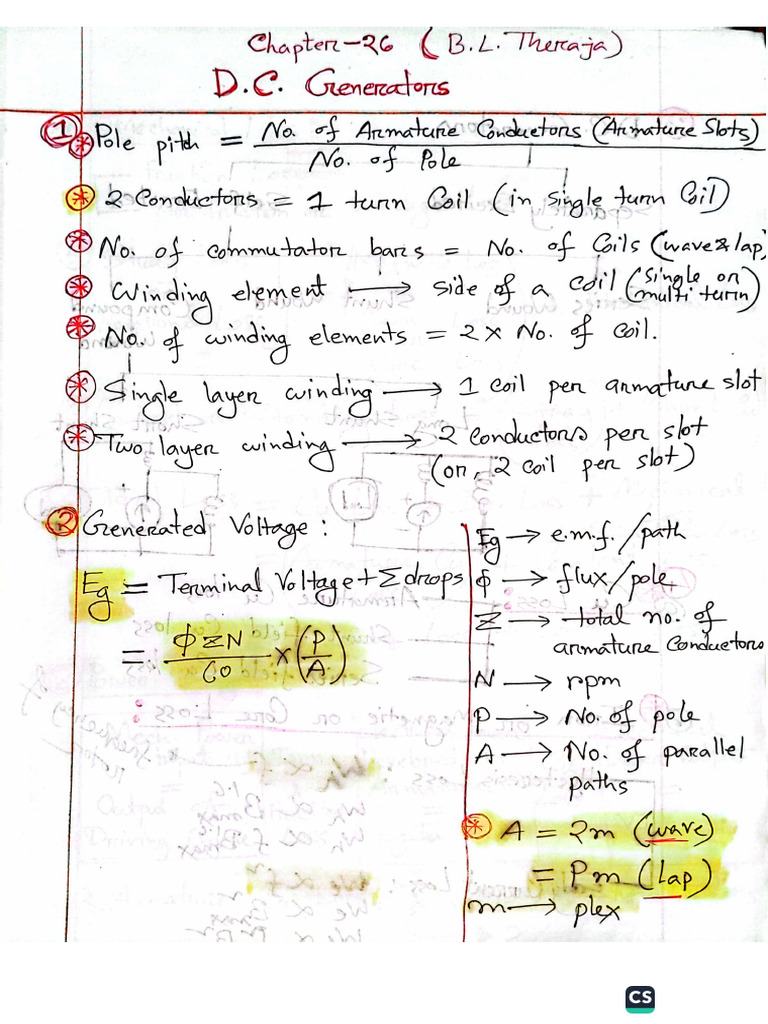 Chapter-26 (B.L. Theraja)
D.C. Generators
1 * Pole pitch = No. of Armature Conductors (Armature Slots) / No. of Pole
* 2 Conductors = 1 turn Coil (in single turn Coil)
* No. of commutator bars = No. of Coils (wave & lap)
* Winding element → side of a coil (single or multi turn)
* No. of winding elements = 2 × No. of coil.
* Single layer winding → 1 coil per armature slot
* Two layer winding → 2 conductors per slot
(or, 2 coil per slot)
2 Generated Voltage:
Eg = Terminal Voltage + Σ drops
= ϕZN/60 × (P/A)
Eg → e.m.f./path
ϕ → flux/pole
Z → total no. of
armature Conductors
N → rpm
P → No. of pole
A → No. of parallel
paths
* A = 2m (wave)
= Pm (Lap)
m → plex
CS